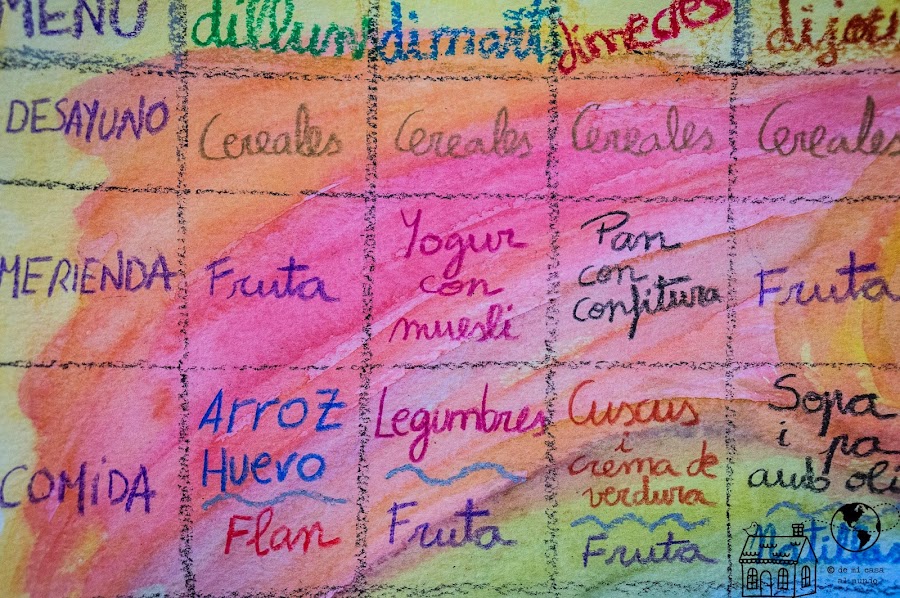 MENÚ dilluns dimarts dimecres dijous
DESAYUNO Cereales Cereales Cereales Cereales
MERIENDA Fruta Yogur con muesli Pan con confitura Fruta
COMIDA
Arroz
Huevo
Flan
Legumbres
Fruta
Cuscus
i
crema de
verdura
Fruta
Sopa
i pa
amb oli
Natillas
© de mi casa
al mundo